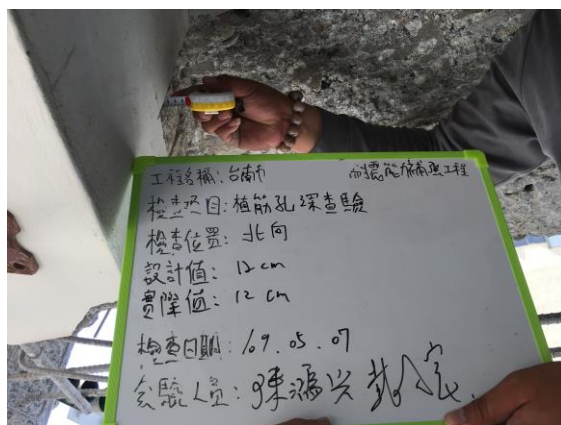 工程名稱: 台南市 耐震能力補強工程
檢查項目: 植筋孔深查驗
檢查位置: 北向
設計值: 12 cm
實際值: 12 cm
檢查日期: 109.05.07
會驗人員: 陳鴻興